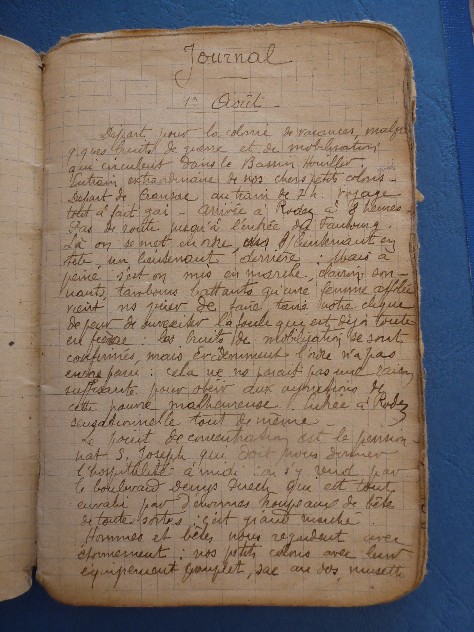 Journal
1er Août
Départ pour la colonie de vacances, malgré
qques bruits de guerre et de mobilisation
qui circulent dans le Bassin Houiller.
Entrain extraordinaire de nos chers petits colons.
Départ de Cransac au train de 7h. Voyage
tout à fait gai. Arrivée à Rodez à 8 heures.
Pas de route jusqu'à l'entrée du Faubourg.
Là on se met en ordre, un lieutenant en
tête un lieutenant derrière : mais à
peine s'est on mis en marche, clairons son-
nants, tambours battants qu'une femme affolée
vient ns prier de faire taire notre clique
de peur de surexciter la foule qui est déjà toute
en fièvre : les bruits de mobilisation se sont
confirmés, mais évidemment l'ordre n'a pas
encore paru : cela ne ns paraît pas une raison
suffisante pour obéir aux injonctions de
cette pauvre malheureuse. Entrée à Rodez
sensationnelle tout de même.
Le point de concentration est le pension-
nat S. Joseph qui doit nous donner
l'hospitalité à midi : on s'y rend par
le boulevard Denys Puech qui est tout
envahi par d'énormes troupeaux de bêtes
de toute sortes : c'est grand marché.
Hommes et bêtes nous regardent avec
étonnement : nos petits colons avec leur
équipement complet, sac au dos, musette